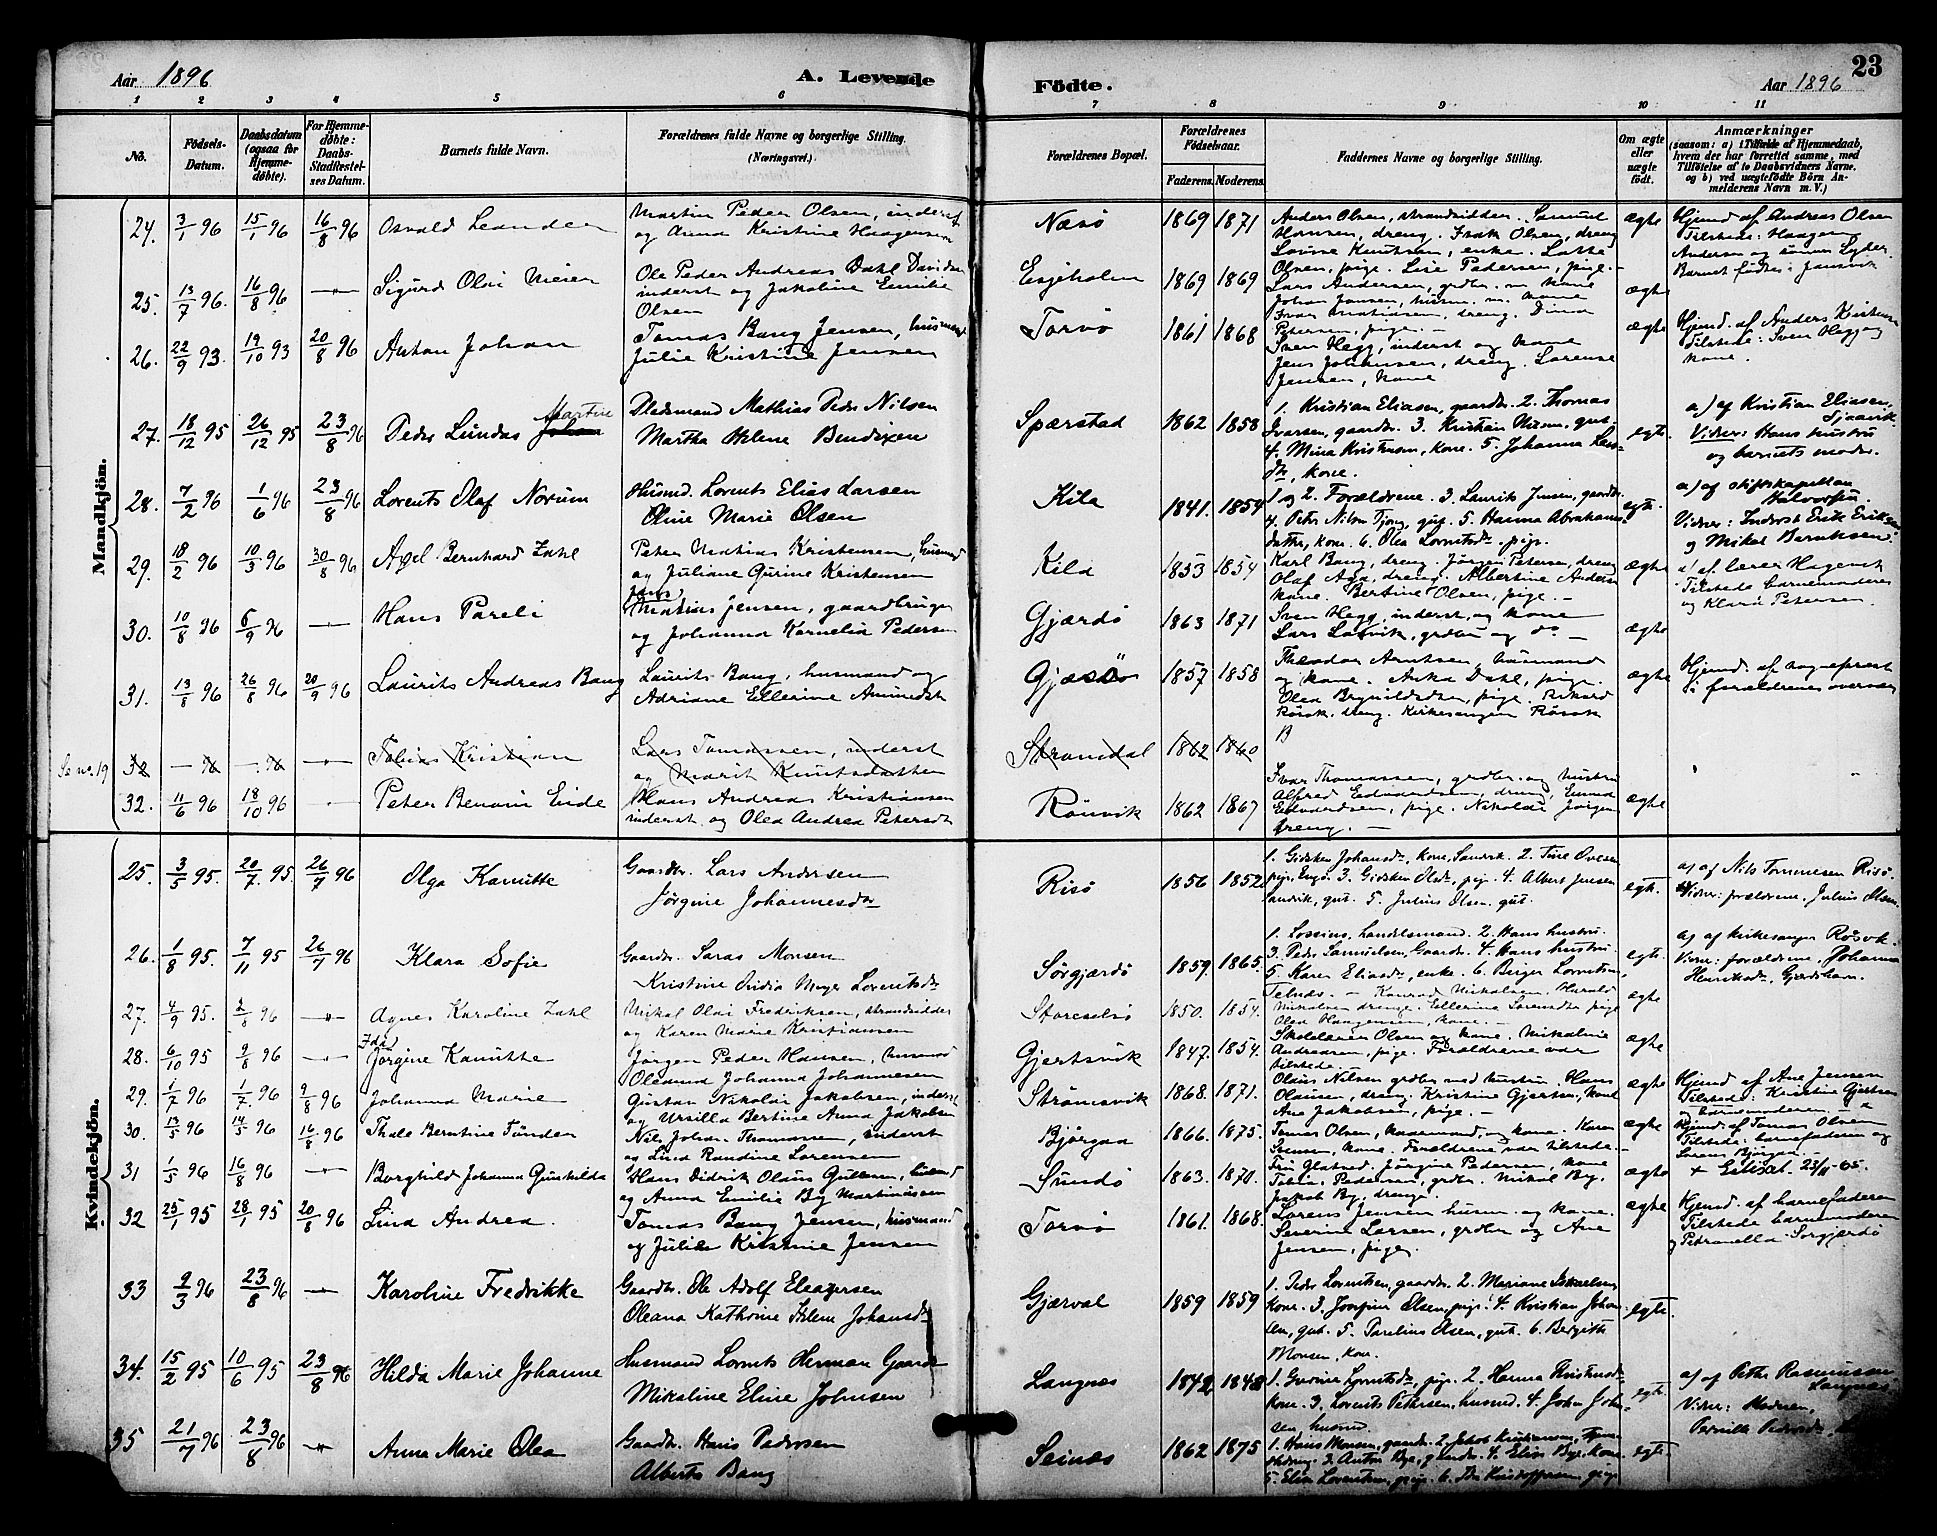 Aar 1896
A. Levende
Födte.
Aar 1896
23
1 2 3 4 5 6 7 8 9 10 11
No.
Födsels-Datum.
Daabsdatum (ogsaa for Hjemme-döbte).
For Hjemme-döbte: Daabs-Stadfæstel-ses Datum.
Barnets fulde Navn.
Forældrenes fulde Navne og borgerlige Stilling.
(Næringsvei.)
Forældrenes Bopæl.
Forældrenes Födselsaar.
Faderens. Moderens.
Faddernes Navne og borgerlige Stilling.
Om ægte eller uægte födt.
Anmærkninger
(saasom: a) i Tilfælde af Hjemmedaab, hvem der har forrettet samme, med Tilföielse af to Daabsvidners Navne, og b) ved uægtefödte Börn An-melderens Navn m. V.)
Mandkjön.
24. 3/1 96 15/1 96 16/8 96 Osvald Leander
Martin Peder Olsen, inderst
og Anna Kristine Haagensen
Næsö 1869 1871
Anders Olsen, strandsidder. Samuel
Hansen, dreng. Olsen, dreng
Lovise Knutsen, enke.
Olsen, pige. Pedersen, pige.
ægte
Hjemd. af Andreas Olsen
Tilstede: Haagen
Andersen og
Barnet födt i
25. 13/7 96. 16/8 96 Sigurd Olai
Ole Peder Andreas Dahl Davidsen
inderst og Jakobine Emilie
Olsen
Esjeholm 1869 1869
Lars Andersen, grdbr. m. kone
Johan Jansen, husm. m. kone
dreng.
Petersen, pige.
ægte
26. 22/9 93. 19/10 93 20/8 96 Anton Johan
Tomas Bang Jensen, husmand
Julie Kristine Jensen
Torvö 1861 1868
Sven Hegg, inderst og kone
Jens Johansen, dreng. Lorense
Jensen, kone
ægte
Hjemd. af Anders
Tilstede: Sven Hegg og
kone.
27. 18/12 95 26/12 95 23/8 96 Peder Lundas Martin
Pladsmand Mathias Peder Nilsen
Martha Helene Bendixen
Spærstad 1862 1858
1. Kristian Eliasen, gaardbr. 2. Thomas
Ivarsen, gaardbr. 3. Kristian gut.
4. Mina Kristensen, kone. 5. Johanna
kone.
egte.
a) af Kristian Eliasen,
Vidner: Hans hustru
og barnets moder.
28. 7/2 96 1/6 96 23/8 96 Lorents Olaf Norum
Husmd. Lorents Elias Larsen
Oline Marie Olsen
Kila 1841. 1854
1 og 2. Forældrene. 3. Laurits Jensen, gaardbr.
4. Peter Nilsen Tjong, gut. 5. Hanna Abrahams-
datter, kone. 6. Olea Lorentsdr. pige.
egte.
a) af stiftskapellan
Halvorsen.
Vidner: Inderst Erik Eriksen
og Mikal Berntsen.
29. 18/2 96 10/3 96 30/8 96 Axel Bernhard Zahl
Peter Mathias Kristensen, husmd
og Juliane Gurine Kristensen
Kila 1853 1854
Karl Bang, dreng. Jörgen Petersen, dreng
Olaf Aga, dreng. Albertine Andersen
kone. Bertine Olsen, pige.
ægte
a) af lærer Hagensk
Tilstede barnemoderen
og Klara Petersen.
30. 10/8 96 6/9 96 Hans Pareli
Jens
Mathias Jensen, gaardbruger
og Johanna Kornelia Pedersen
Gjærdö 1863 1871
Sven Hegg, inderst og kone
Lars grdbr. og do
ægte
31. 13/8 96 26/8 96 20/9 96 Laurits Andreas Bang
Laurits Bang, husmand og
Adriane Ellerine Amundsdt
Gjæsö 1857 1858
Theodor Arntsen, husmand
og kone. Dahl, pige.
Olea Brynildsdtr, pige. Rikard
Rösok, dreng. Kirkesanger Rösok
ægte
Hjemd. af sogneprest
i forældrenes overvær
Se no. 19
32 — 96 — 96 Tobias Kristian
Lars Tomassen, inderst
og Marit Knutsdatter
Strømdal 1862 1860
32. 11/6 96 18/10 96 Peter Benoni Eide
Hans Andreas Kristiansen
inderst og Olea Andrea Petersdt
Rönvik 1862 1867
Ivar Thomassen, grdbr. og hustru
Alfred Edvardsen, dreng,
Edvardsen, pige. Nikolai Jörgen
dreng.
ægte
Kvindekjön.
25. 3/5 95. 20/7. 95. 26/7 96 Olga Kanutte
Gaardbr. Lars Andersen
Jörgine Johannesdr
Risö 1856 1852
1. Gidsken Johansdr, kone, Sandvik. 2. Tine Ovesen
pige, Engö. 3. Gidsken Olsdr, pige. 4. Albert Jensen
Sandvik, gut. 5. Julius Olsen. gut.
egte.
a) af Nils Tommesen Risö.
Vidner: forældrene, Julius Olsen.
26. 1/8 95. 7/11 95 26/7 96 Klara Sofie
Gaardbr. Saras Monsen
Kristine Meyer Lorentsdr
Sörgjærdö 1859. 1865.
1. Loseius, handelsmand. 2. Hans hustru.
3. Peder Samuelsen, Gaardbr. 4. Hans hustru
5. Karen Eliasdr, enke. 6. Birger Lorentsen,
Telnæs.
egte.
a) af kirkesanger Rösok.
Vidner: forældrene, Johanna
Henriksdr, Gjærdsham.
27. 4/9 95. 2/8 96 Agnes Karoline Zahl
Mikal Olai Fredriksen, strandsidder
og Karen Marie Kristiansen
Storeselsö 1850. 1854.
Konrad Nikolaisen. Harald
Nikolaisen drenge. Ellerine Sörensdtr pige
Olea Haagensen, kone.
ægte
28. 6/10 95 9/8 96 Ida
Jörgine Kanutte
Jörgen Peder Hansen, husmd
Oleanna Johanna Johannesen
Gjertsvik 1847. 1854.
Skolelærer Olsen og kone. Nikoline
Andreasen, pige. Forældrene var
tilstede.
ægte
29. 1/7 96 1/7. 96 9/8 96 Johanna Marie
Gustav Nikolai Jakobsen, inderst
og Ursilla Bertine Anna Jakobsen
Strömsvik 1868. 1871.
Olaus Nilsen grdbr med hustru. Hans
Olausen, dreng. Kristine Gjertsen, kone
Ane Jakobsen, pige.
ægte
Hjemd. af Ane Jensen
Tilstede: Kristine Gjertsen
og barnemoderen
30. 13/5 96 14/5 96 16/8 96 Thale Berntine Tünden
Nils Johan Thomassen, inderst
og Lina Randine Lorensen
Bjørgaa 1866. 1875.
Tomas Olsen, og kone. Karen
Svensen, kone. Forældrene var tilstede.
ægte
Hjemd. af Tomas Olsen
Tilstede: barnefaderen og
31 1/5 96 16/8 96 Borghild Johanna Gunhilda
Hans Didrik Olaus Gullesen,
og Anna Emilie By Martinussen
Sundö 1863. 1870.
Jörgine Pedersen, kone
Tobias Pedersen, grdbr. Mikal By.
Jakob By, drenge.
ægte
23/11-65.
32 25/1 95 28/1 95 20/8 96 Lina Andrea.
Tomas Bang Jensen, husmand
og Julie Kristine Jensen
Torvö 1861. 1868.
Lorens Jensen husm. og kone.
Severin Larsen, grdbr og Ane
Jensen, pige.
ægte
Hjemd. af barnefaderen
Tilstede barnemoderen
og Petronella Sörgjærdö
33 9/3 96 23/8 96 Karoline Fredrikke
Gaardbr. Ole Adolf Eleazersen
Oleana Kathrine Helene Johansdr
Gjærval 1859 1859
1. Peder Lorentsen, gaardbr. 2. Mariane Iskaelsen
kone. 3. Josefine Olsen, pige. 4. Kristian Johan-
sen, gut. 5. Parelius Olsen, gut. 6. Bergitte
Monsen, kone.
egte.
34. 15/2 95 10/6 95 23/8 96 Hilda Marie Johanne
Husmand Lorents Herman Gaarder
Mikaline Eline Johnsen
Langnes 1842 1848
1. Gurine Lorentsdr, pige. 2. Hanna Kristensdr
kone. 3. Lorents Petersen, husmd. 4. John John-
sen, husmd.
egte.
a) af Peter Rasmussen
Langnes
Vidner: Moderen,
Pernille
35 21/7 96 23/8 96 Anna Marie Olea
Gaardbr. Hans Pedersen
Alberte Bang
Seinæs 1862 1875
1. Hans Monsen, gaardbr. 2. Jakob Kristiansen,
3. Anton Bye, gaardbr. 4. Elise Bye, kone
5. Elise Lorentsen, pige. 6. Kristoffersen, pige
egte